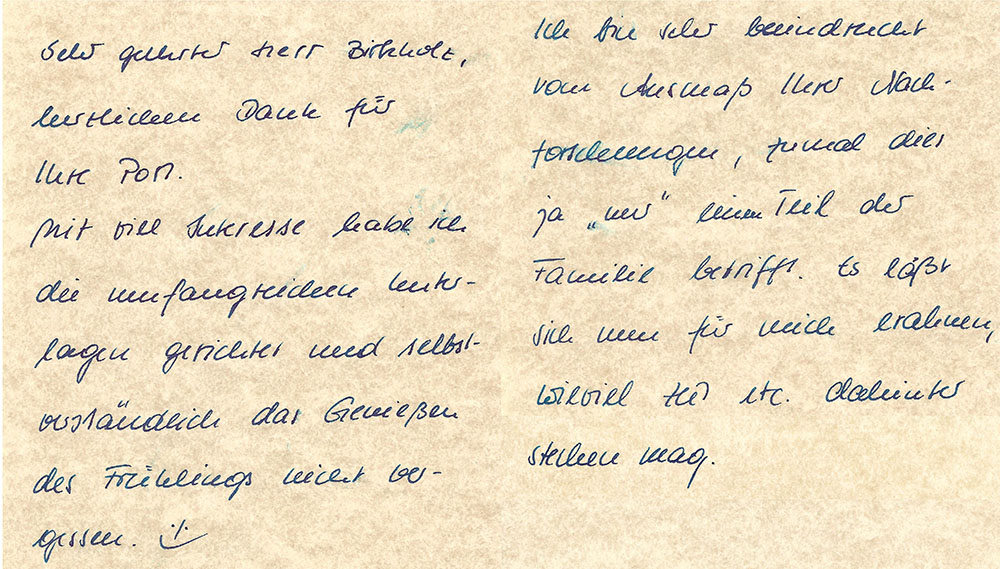 Sehr geehrter Herr Birkholz,
herzlichen Dank für
Ihre Post.
Mit viel Interesse habe ich
die umfangreichen Unter-
lagen gesichtet und selbst-
verständlich das Genießen
des Frühlings nicht ver-
gessen.
Ich bin sehr beeindruckt
vom Ausmaß Ihrer Nach-
forschungen, zumal dies
ja „nur" einen Teil der
Familie betrifft. Es läßt
sich nun für mich erahnen,
wieviel Zeit etc. dahinter
stecken mag.